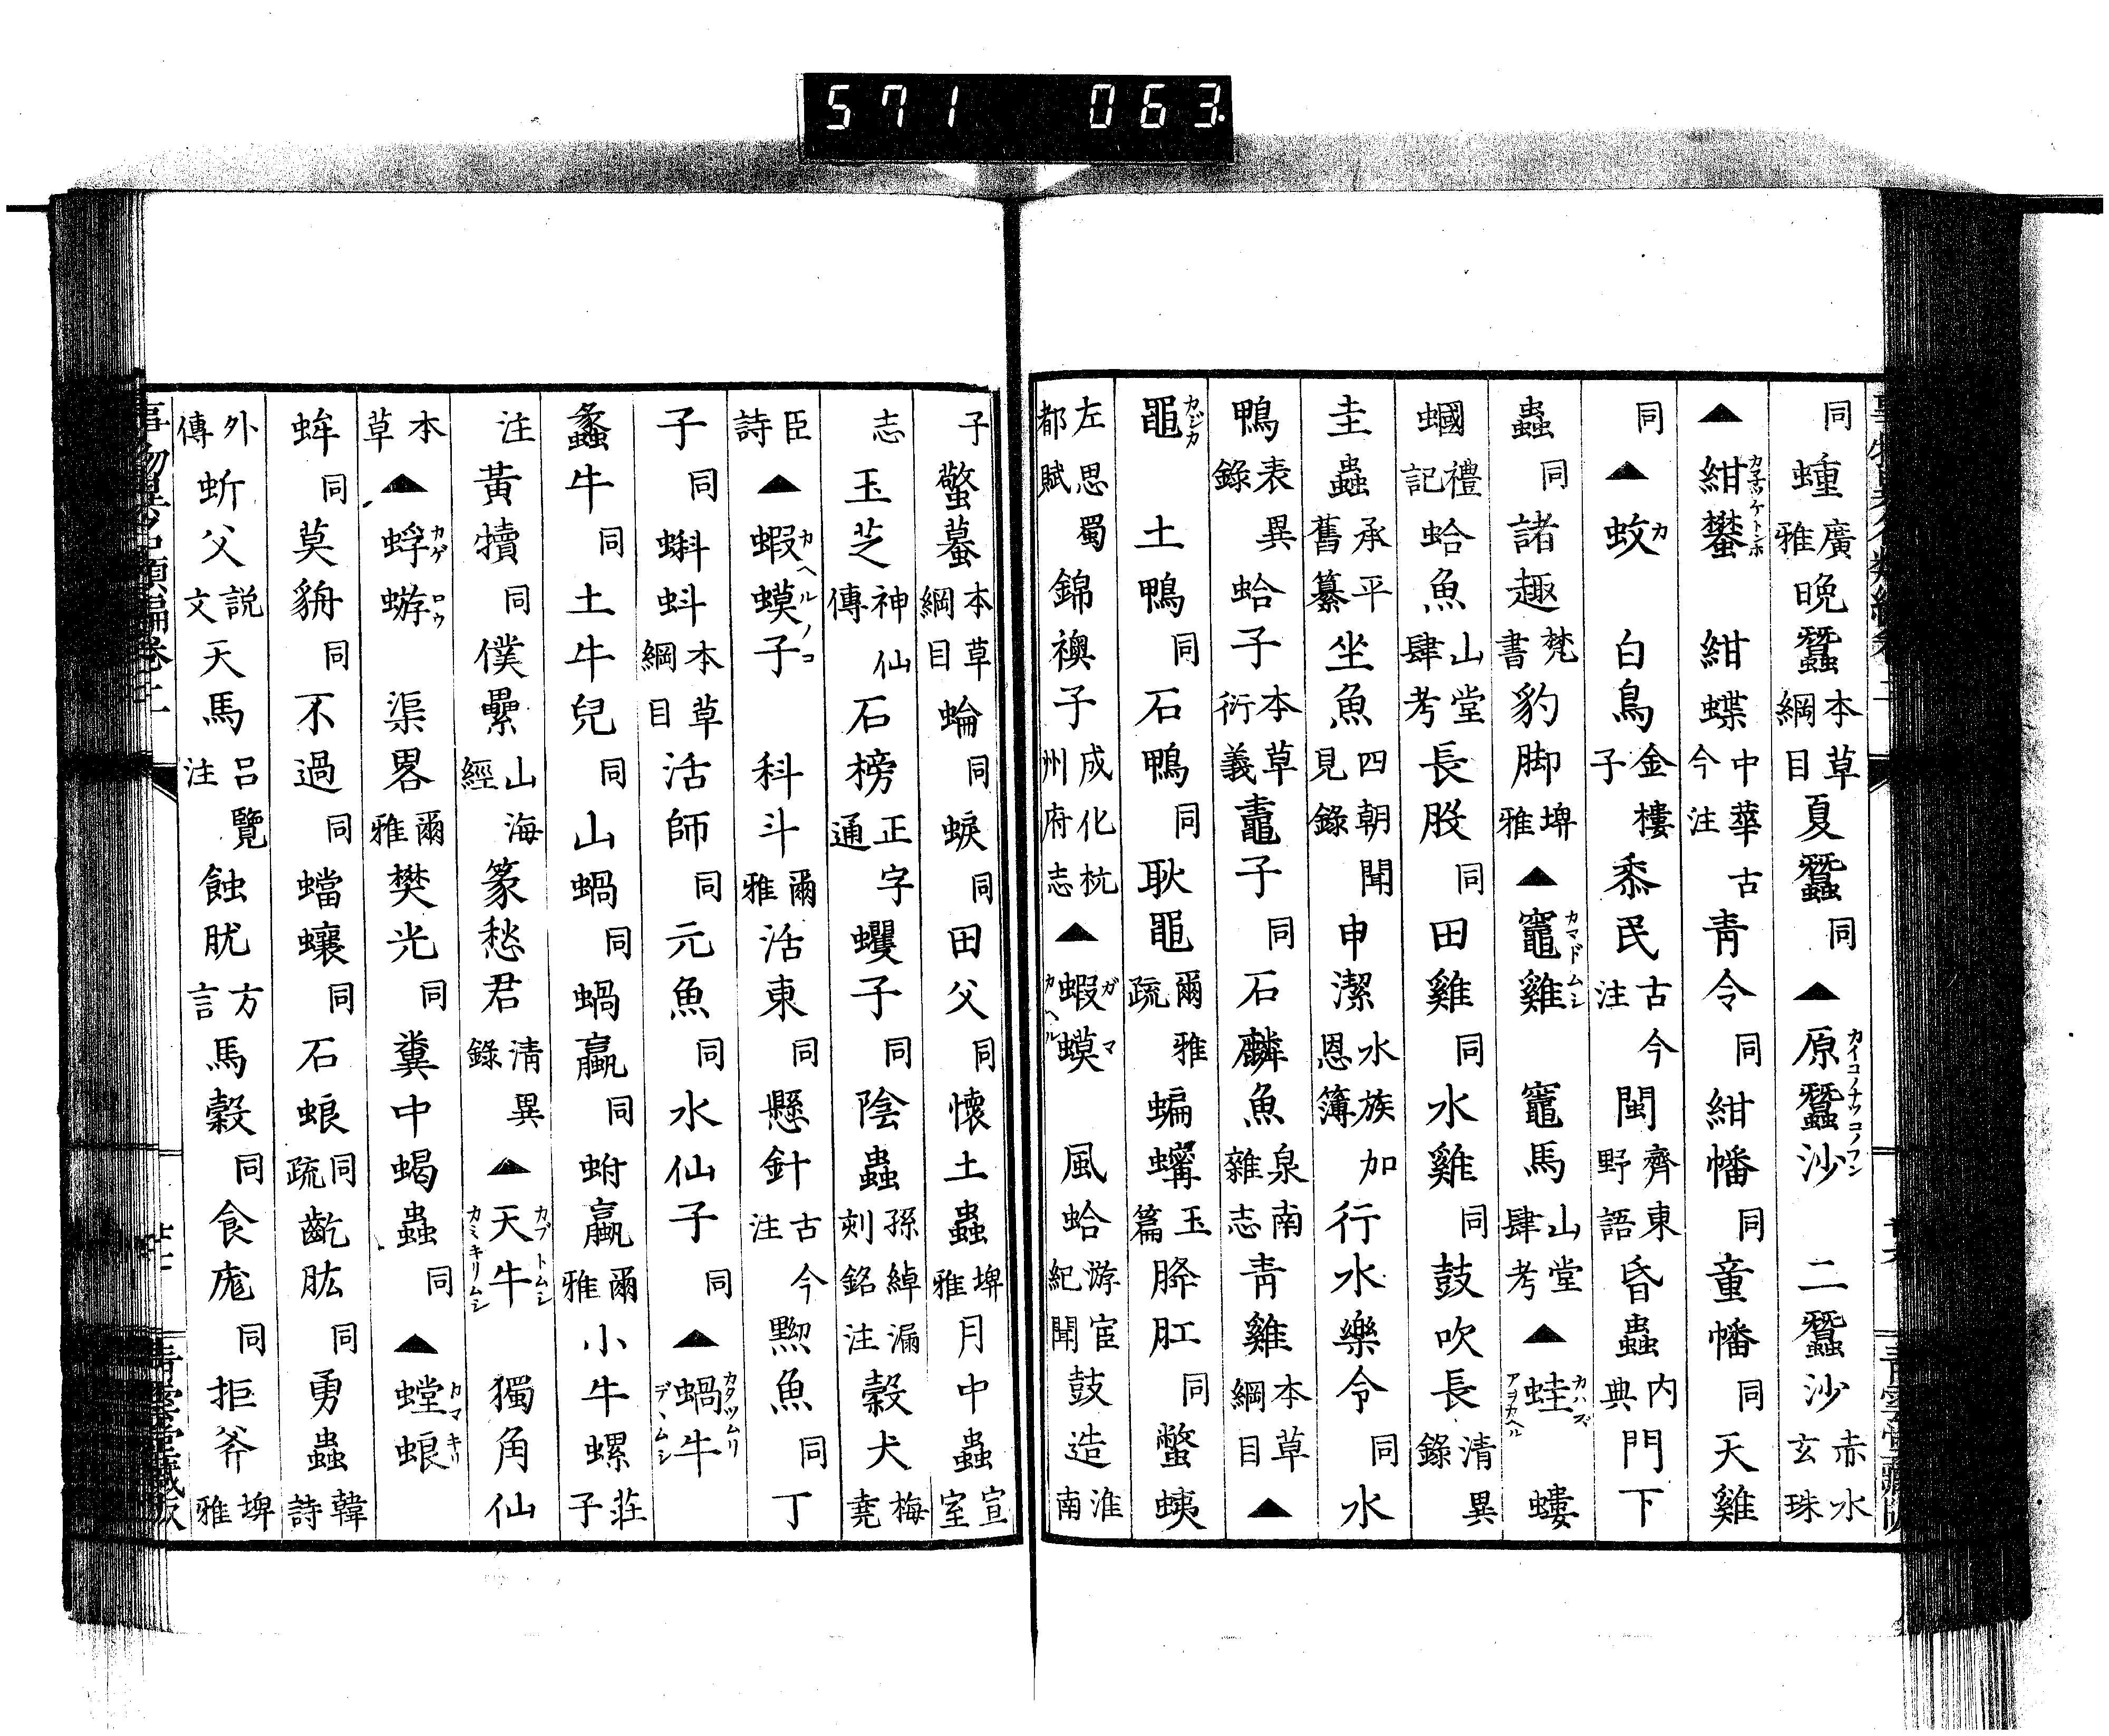 571 063.
同蝩廣雅晚蠶本草綱目夏蠶同▲原蠶沙カイコノナツコノフン二蠶沙赤水玄珠
▲紺蠜カネツケトンボ紺蝶中華古今注青令同紺幡同童幡同天雞
同▲蚊カ白鳥金樓子黍民古今注閩齊東野語昏蟲内典門下
蟲同諸趣梵書豹脚埤雅▲竈雞カマドムシ竈馬山堂肆考▲蛙カハズアヲカヘル螻
蟈禮記蛤魚山堂肆考長股同田雞同水雞同鼓吹長清異錄
圭蟲承平舊纂坐魚四朝聞見錄申潔水族恩簿加行水樂令同水
鴨表異錄蛤子本草衍義鼃子同石麟魚泉南雜志青雞本草綱目▲
黽カジカ土鴨同石鴨同耿黽爾雅疏蝙玉篇胮肛同螫蛦
左思蜀都賦錦襖子成化杭州府志▲蝦蟇ガマカヘル風蛤游宦紀聞鼓造淮南
子蟼蟇本草綱目蜦同蜧同田父同懷土蟲埤雅月中蟲宣室
志玉芝神仙傳石榜正字通蠼子同陰蟲孫綽漏刻銘注穀犬梅堯
臣詩▲蝦蟆子カヘルノコ科斗爾雅活東同懸針古今注魚同丁
子同蝌蚪本草綱目活師同元魚同水仙子同▲蝸牛カタツムリデヽムシ
蠡牛同土牛兒同山蝸同蝸蠃同蚹蠃爾雅小牛螺莊子
注黃犢同僕纍山海經篆愁君清異錄▲天牛カブトムシカミキリムシ獨角仙
本草▲蜉蝣カゲロウ渠畧爾雅樊光同糞中蝎蟲同▲螳蜋カマキリ
蛑同莫貈同不過同蟷蠰同石蜋同疏齕肬同勇蟲韓詩
外傳蚚父說文天馬呂覽注蝕肬方言馬穀同食庬同拒斧埤雅
事物異名類編卷
青雲堂藏版